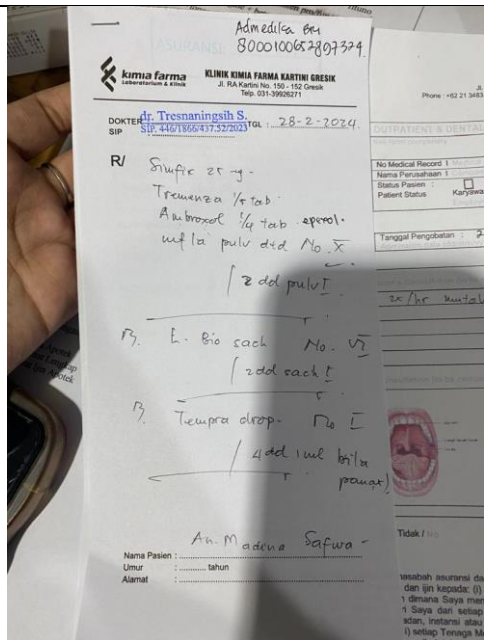 Admedika BRI
8000100652807324
ASURANSI
kimia farma
Laboratorium & Klinik
KLINIK KIMIA FARMA KARTINI GRESIK
Jl. RA Kartini No. 150 - 152 Gresik
Telp. 031-39926271
DOKTER dr. Tresnaningsih S.
SIP SIP. 446/1866/437.52/2023 TGL : 28-2-2024.
R/ Simfix 25 mg -
Tremenza 1/5 tab
Ambroxol 1/4 tab
mf la pulv dtd No. X
/ 2 dd pulv I
R/ L. Bio sach No. VI
/ 2dd sach I
R/ Tempra drop- No I
/ 4dd 1 ml bila
panas)
An. Madena Safwa -
Nama Pasien :
Umur : tahun
Alamat :
Phone : +62 21 3483
OUTPATIENT & DENTAL
No Medical Record
Nama Perusahaan
Status Pasien :
Patient Status Karyawa
Tanggal Pengobatan : 2
2x/hr
Tidak / No
nasabah asuransi da
dan ijin kepada: (i)
dimana Saya mer
Saya dan setiap
adan, instansi atau
i) setiap Tenaga M